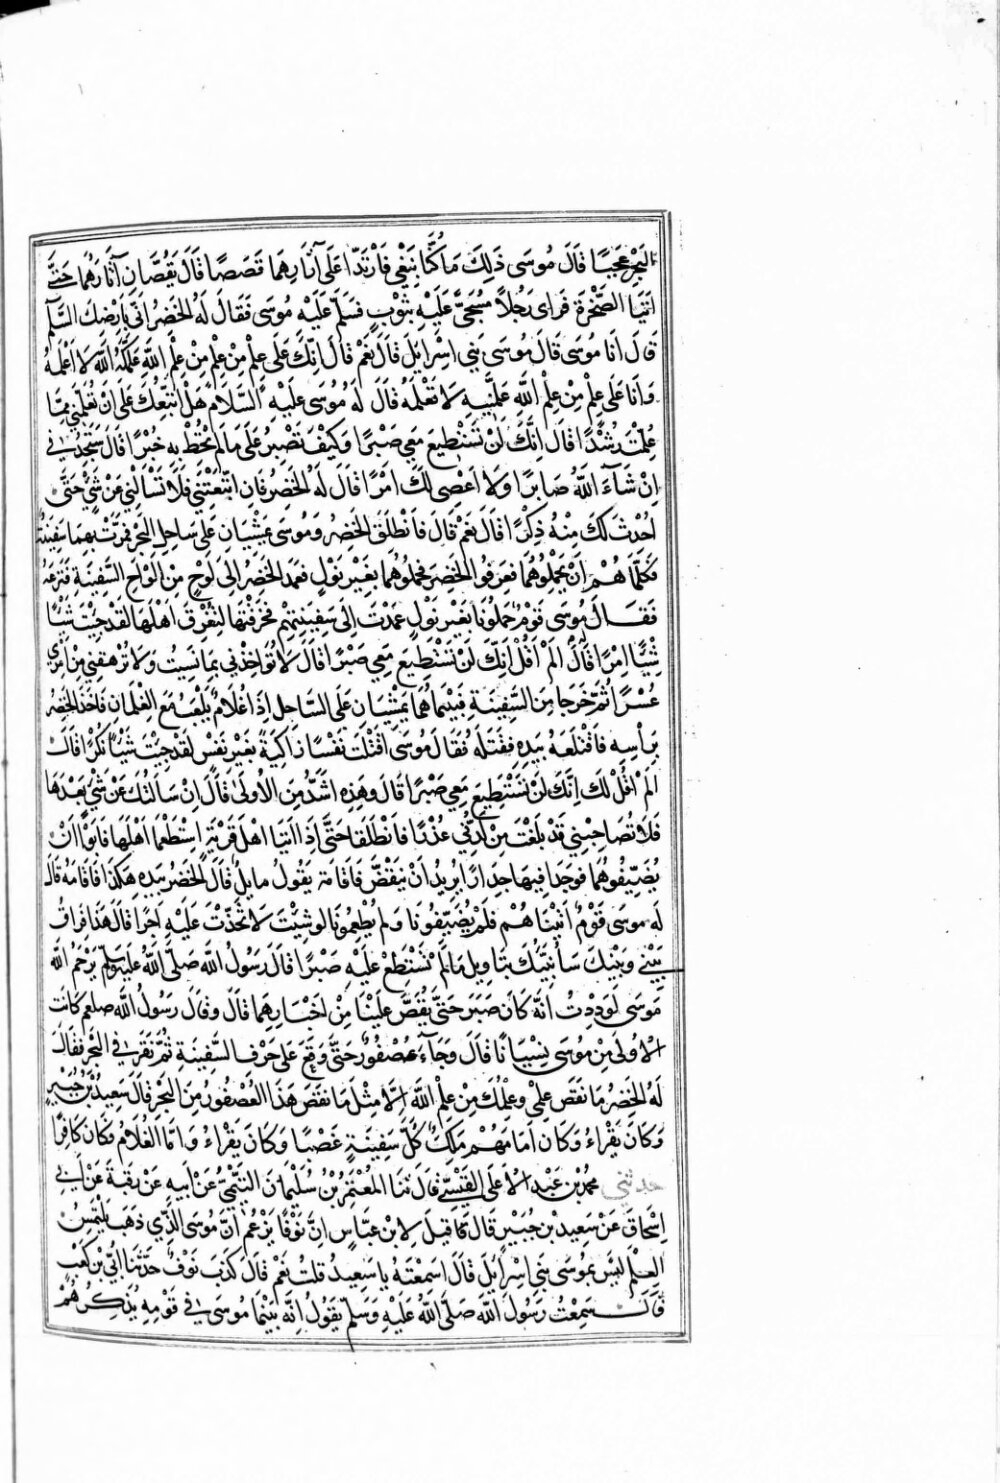 البحر عجبا قال موسى ذلك ما كنا نبغي فارتدا على آثارهما قصصا قال يقصان آثارهما حتى
اتيا الصخرة فراى رجلا مسجى عليه بثوب فسلم عليه موسى فقال له الخضر انى بارضك السلم
قال انا موسى قال موسى بني اسرايل قال نعم قال انك على علم من علم من علم الله علمكه الله لا اعلمه
وانا على علم من علم الله علمنيه لا تعلمه قال له موسى عليه السلام هل اتبعك على ان تعلمني مما
علمت رشدا قال انك لن تستطيع معي صبرا وكيف تصبر على ما لم تحط به خبرا قال ستجدني
ان شآء الله صابرا ولا اعصي لك امرا قال له الخضر فان اتبعتني فلا تسالني عن شيء حتى
احدث لك منه ذكرا قال نعم قال فانطلق الخضر وموسى يمشيان على ساحل البحر فمرت بهما سفينة
فكلماهم ان يحملوهما فعرفوا الخضر فحملوهما بغير نول فعمد الخضر الى لوح من الواح السفينة فنزعه
فقال موسى قوم حملونا بغير نول عمدت الى سفينتهم فخرقتها لتغرق اهلها لقد جيت شيئا
شيئا امرا قال الم اقل انك لن تستطيع معي صبرا قال لا تواخذني بما نسيت ولا ترهقني من امري
عسرا ثم خرجا من السفينة فبينما هما يمشيان على الساحل اذا غلام يلعب مع الغلمان فاخذ الخضر
براسه فاقتلعه بيده فقتله فقال موسى اقتلت نفسا زاكية بغير نفس لقد جيت شيئا نكرا قال
الم اقل لك انك لن تستطيع معي صبرا قال وهذه اشد من الاولى قال ان سالتك عن شيء بعدها
فلا تصاحبني قد بلغت من لدني عذرا فانطلقا حتى اذا اتيا اهل قرية استطعما اهلها فابوا ان
يضيفوهما فوجدا فيها جدارا يريد ان ينقض فاقامه يقول مايل قال الخضر بيده هكذا فاقامه قال
له موسى قوم اتيناهم فلم يضيفونا ولم يطعمونا لو شيت لاتخذت عليه اجرا قال هذا فراق
بيني وبينك سانبيك بتاويل ما لم تستطع عليه صبرا قال رسول الله صلى الله عليه وسلم يرحم الله
موسى لوددت انه كان صبر حتى يقص علينا من اخبارهما قال وقال رسول الله صلعم كانت
الاولى من موسى نسيانا قال وجآء عصفور حتى وقع على حرف السفينة ثم نقر في البحر فقال
له الخضر ما نقص علمي وعلمك من علم الله الا مثل ما نقص هذا العصفور من البحر قال سعيد بن جبير
وكان يقراء وكان امامهم ملك كل سفينة غصبا وكان يقراء واما الغلام فكان كافرا
حدثني محمد بن عبد الاعلى القيسي قال ثنا المعتمر بن سليمان التيمي عن ابيه عن رقبة عن ابي
اسحاق عن سعيد بن جبير قال قيل لابن عباس ان نوفا يزعم ان موسى الذي ذهب يلتمس
العلم ليس بموسى بني اسرايل قال اسمعته يا سعيد قلت نعم قال كذب نوف حدثنا ابي بن كعب
قال سمعت رسول الله صلى الله عليه وسلم يقول انه بينما موسى في قومه يذكرهم